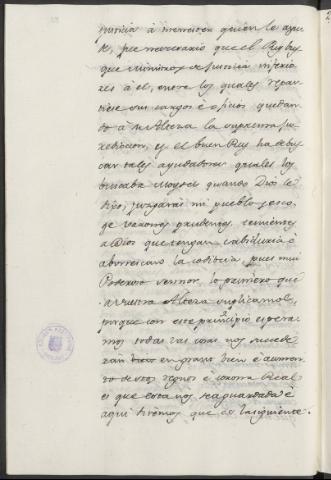 justicia á menester quien le ayu-
de, fue necesario que el Rey bus-
que ministros de justicia inferio-
res á el, entre los quales repar-
tiese sus cargos é oficios quedan-
do á su Alteza la suprema ju-
redicion, y el buen Rey ha de bus-
car tales ayudadores quales los
buscaba Moysés quando Dios le
dixo, juzgarás mi pueblo, esco-
ge varones prudentes, temientes
a Dios que tengan sabiduria é
aborrescan la codicia, pues mui
Poderoso señor, lo primero que
a vuestra Alteza suplicamos
porque con este principio espera-
mos todas las cosas nos sucede-
ran en grant bien é aumen-
to destos regnos é corona Real
es que esta nos sea guardada é
aqui diremos que es lo siguiente.